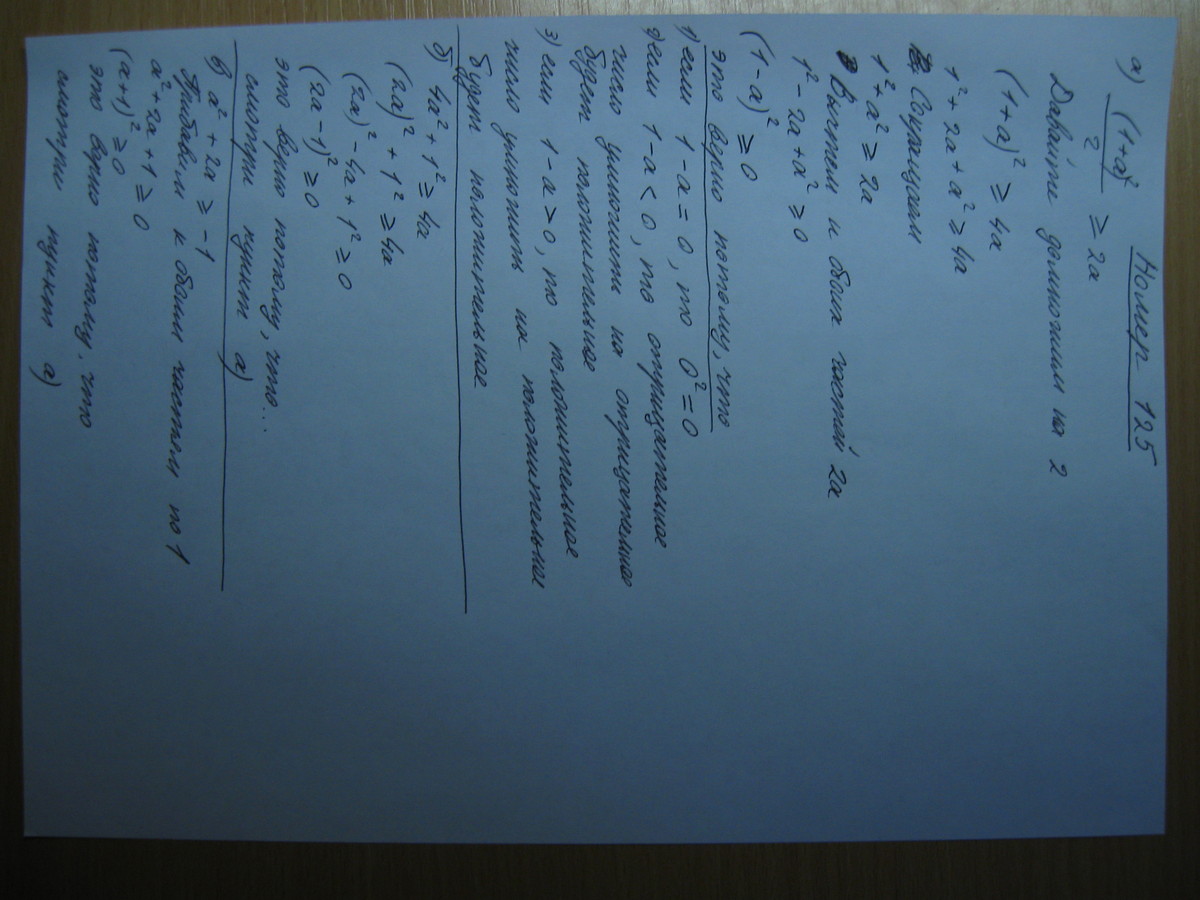 Номер 125
а) (1+a)² / 2 ≥ 2a
Давайте домножим на 2
(1+a)² ≥ 4a
1² + 2a + a² ≥ 4a
Сократим
1² + a² ≥ 2a
Вычтем и обоих частей 2a
1² - 2a + a² ≥ 0
(1-a)² ≥ 0
это верно потому, что
1) если 1-a = 0, то 0² = 0
2) если 1-a < 0, то отрицательное
число умножить на отрицательное
будет положительное
3) если 1-a > 0, то положительное
число умножить на положительное
будет положительное
б) 4a² + 1² ≥ 4a
(2a)² + 1² ≥ 4a
(2a)² - 4a + 1² ≥ 0
(2a-1)² ≥ 0
это верно потому, что...
смотри пункт а)
в) a² + 2a ≥ -1
Прибавим к обоим частям по 1
a² + 2a + 1 ≥ 0
(a+1)² ≥ 0
это верно потому, что
смотри пункт а)